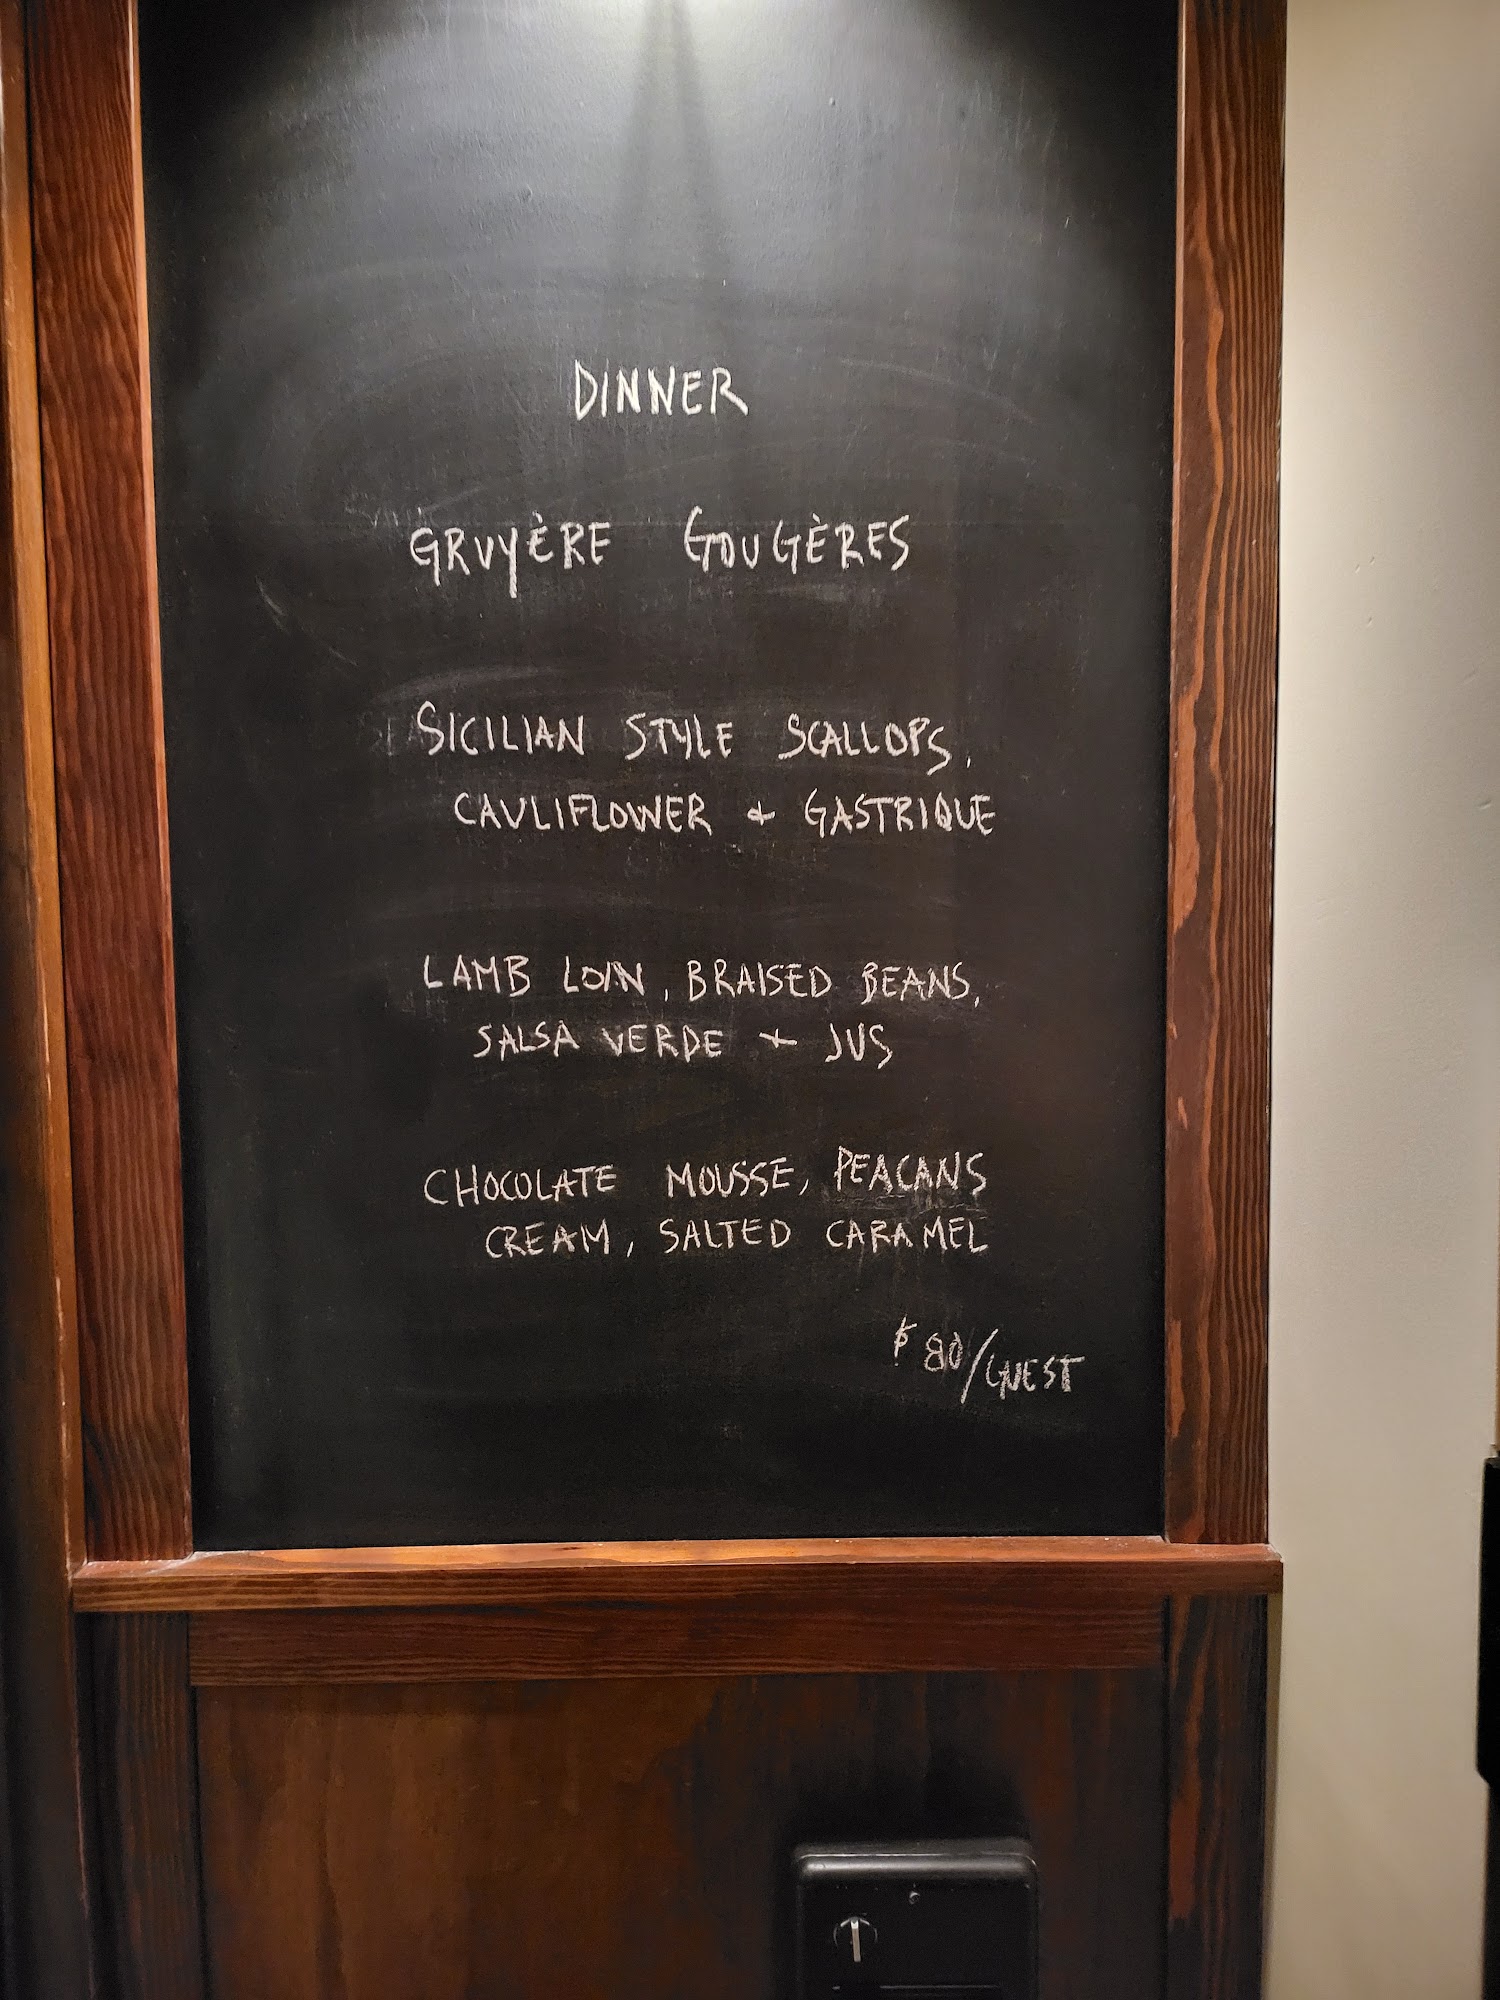 DINNER
GRUYÈRE GOUGÈRES
SICILIAN STYLE SCALLOPS,
CAULIFLOWER + GASTRIQUE
LAMB LOIN, BRAISED BEANS,
SALSA VERDE + JUS
CHOCOLATE MOUSSE, PEACANS
CREAM, SALTED CARAMEL
$80/GUEST